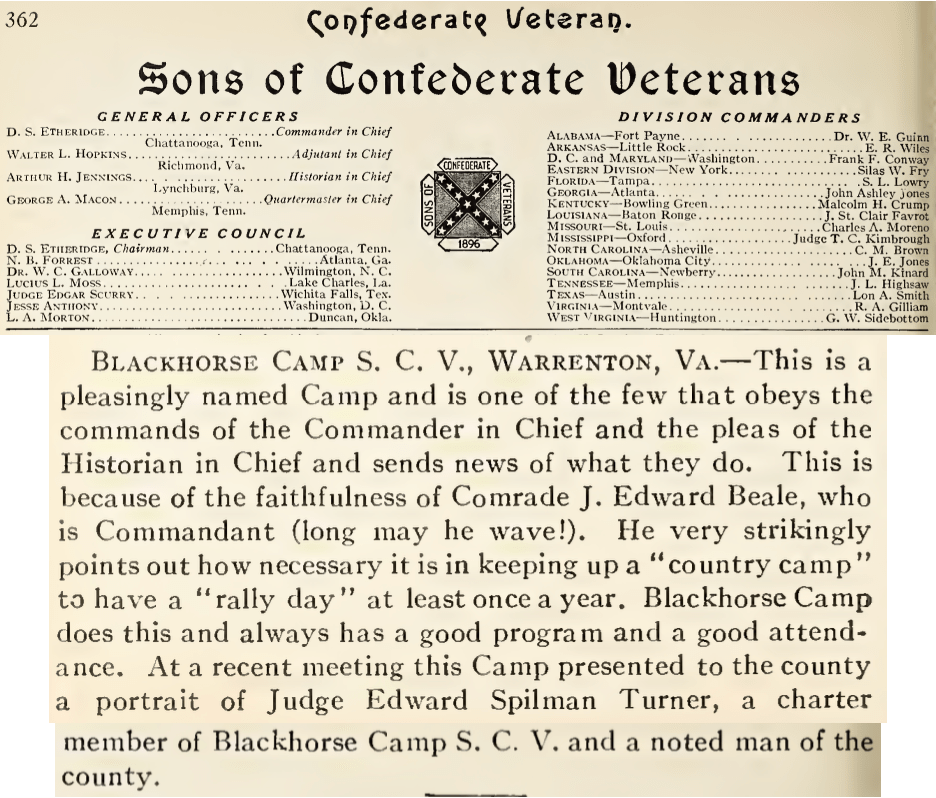 362
Confederate Veteran.
Sons of Confederate Veterans
GENERAL OFFICERS
D. S. ETHERIDGE........................Commander in Chief
Chattanooga, Tenn.
WALTER L. HOPKINS.......................Adjutant in Chief
Richmond, Va.
ARTHUR H. JENNINGS......................Historian in Chief
Lynchburg, Va.
GEORGE A. MACON....................Quartermaster in Chief
Memphis, Tenn.
EXECUTIVE COUNCIL
D. S. ETHERIDGE, Chairman...............Chattanooga, Tenn.
N. B. FORREST................................Atlanta, Ga.
DR. W. C. GALLOWAY......................Wilmington, N. C.
LUCIUS L. MOSS.........................Lake Charles, La.
JUDGE EDGAR SCURRY....................Wichita Falls, Tex.
JESSE ANTHONY..........................Washington, D. C.
L. A. MORTON...............................Duncan, Okla.
CONFEDERATE
SONS OF
VETERANS
1896
DIVISION COMMANDERS
ALABAMA—Fort Payne....................Dr. W. E. Guinn
ARKANSAS—Little Rock.......................E. R. Wiles
D. C. and MARYLAND—Washington.........Frank F. Conway
EASTERN DIVISION—New York.................Silas W. Fry
FLORIDA—Tampa..............................S. L. Lowry
GEORGIA—Atlanta......................John Ashley Jones
KENTUCKY—Bowling Green..............Malcolm H. Crump
LOUISIANA—Baton Rouge................J. St. Clair Favrot
MISSOURI—St. Louis....................Charles A. Moreno
MISSISSIPPI—Oxford................Judge T. C. Kimbrough
NORTH CAROLINA—Asheville..................C. M. Brown
OKLAHOMA—Oklahoma City.....................J. E. Jones
SOUTH CAROLINA—Newberry................John M. Kinard
TENNESSEE—Memphis.......................J. L. Highsaw
TEXAS—Austin..............................Lon A. Smith
VIRGINIA—Montvale.........................R. A. Gilliam
WEST VIRGINIA—Huntington..............G. W. Sidebottom
BLACKHORSE CAMP S. C. V., WARRENTON, VA.—This is a
pleasingly named Camp and is one of the few that obeys the
commands of the Commander in Chief and the pleas of the
Historian in Chief and sends news of what they do. This is
because of the faithfulness of Comrade J. Edward Beale, who
is Commandant (long may he wave!). He very strikingly
points out how necessary it is in keeping up a "country camp"
to have a "rally day" at least once a year. Blackhorse Camp
does this and always has a good program and a good attend-
ance. At a recent meeting this Camp presented to the county
a portrait of Judge Edward Spilman Turner, a charter
member of Blackhorse Camp S. C. V. and a noted man of the
county.